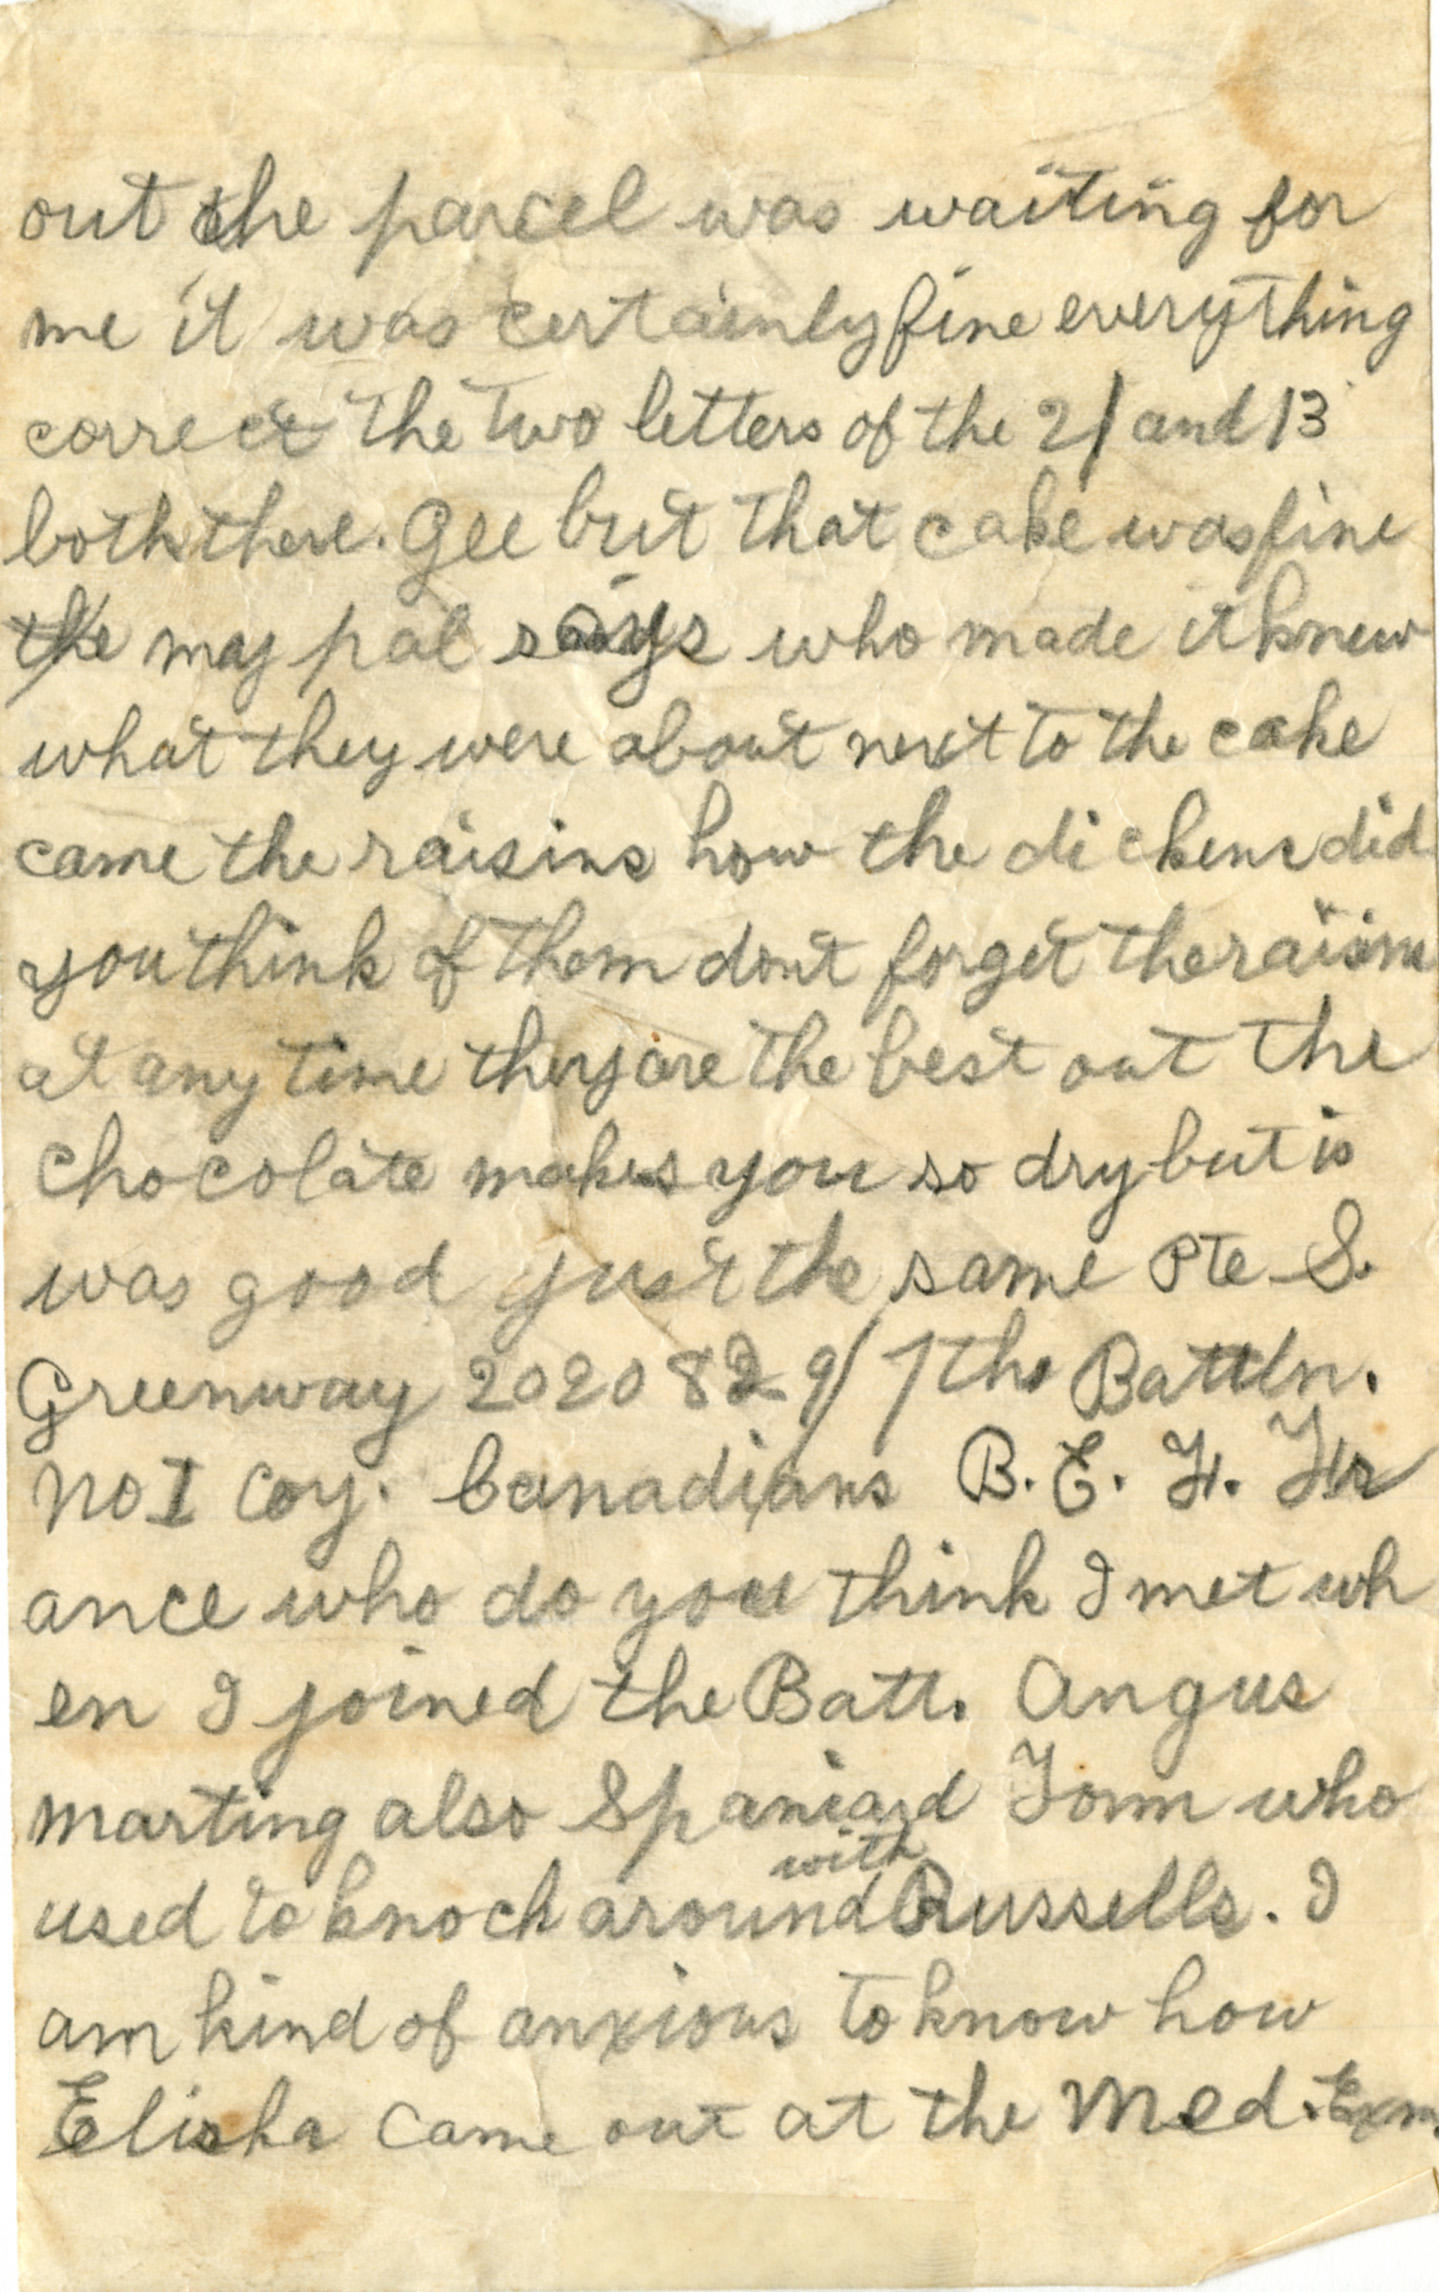 out the parcel was waiting for
me it was certainly fine everything
correct the two letters of the 21 and 13
both there. Gee but that cake was fine
the my pal says who made it knew
what they were about next to the cake
came the raisins how the dickens did
you think of them dont forget the raisins
at any time they are the best out the
chocolate makes you so dry but is
was good just the same Pte S.
Greenway 202082 9/7ths Battln.
No I Coy. Canadians B. E. F. Fr
ance who do you think I met wh
en I joined the Batt. Angus
Marting also Spaniard Tom who
with
used to knock around Russells. I
am kind of anxious to know how
Elisha came out at the Med. Exm.